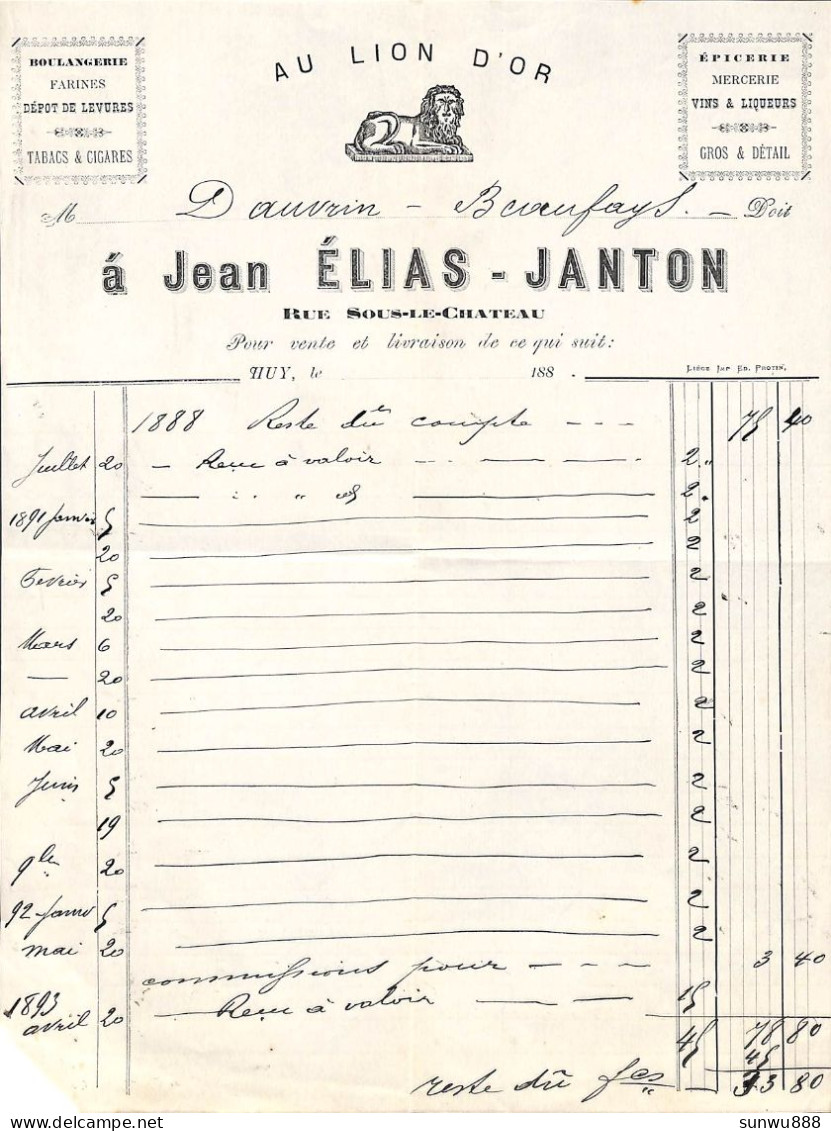 AU LION D'OR
BOULANGERIE
FARINES
DÉPOT DE LEVURES
TABACS & CIGARES
ÉPICERIE
MERCERIE
VINS & LIQUEURS
GROS & DÉTAIL
M Dauvrin - Beaufays. - Doit
á Jean ÉLIAS - JANTON
RUE SOUS-LE-CHATEAU
Pour vente et livraison de ce qui suit:
HUY, le 188 .
LIÉGE IMP ED. PROTIN.
1888 Reste dû compte - - - 75 40
Juillet 20 - Reçu à valoir - - - - 2 "
" " 2 "
1891 Janvier 5 2 "
20 2
Fevrier 5 2
20 2
Mars 6 2
— 20 2
avril 10 2
Mai 20 2
Juin 5 2
19 2
9bre 20 2
92 Janv 5 2
mai 20 2
commissions pour - - - 3 40
1893
avril 20 - Reçu à valoir - - 15
45 78 80
45
reste dû fcs 33 80
sunwu888